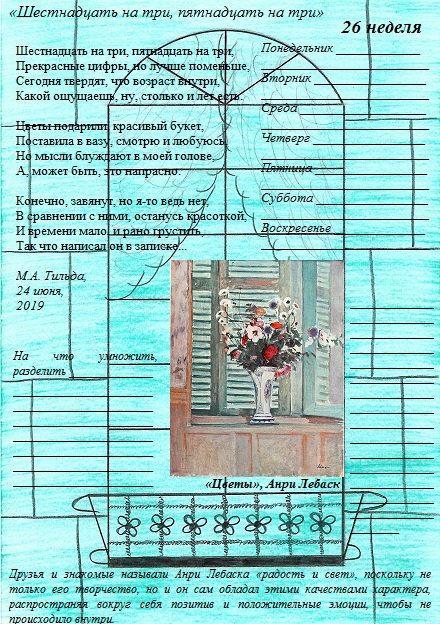 «Шестнадцать на три, пятнадцать на три»
26 неделя
Шестнадцать на три, пятнадцать на три,
Прекрасные цифры, но лучше поменьше,
Сегодня твердят, что возраст внутри,
Какой ощущаешь, ну, столько и лет есть.
Цветы подарили, красивый букет,
Поставила в вазу, смотрю и любуюсь,
Но мысли блуждают в моей голове,
А, может быть, это напрасно.
Конечно, завянут, но я-то ведь нет,
В сравнении с ними, останусь красоткой,
И времени мало, и рано грустить,
Так что написал он в записке...
М.А. Тильда,
24 июня,
2019
Понедельник
Вторник
Среда
Четверг
Пятница
Суббота
Воскресенье
На что умножить,
разделить
«Цветы», Анри Лебаск
Друзья и знакомые называли Анри Лебаска «радость и свет», поскольку не
только его творчество, но и он сам обладал этими качествами характера,
распространяя вокруг себя позитив и положительные эмоции, чтобы не
происходило внутри.